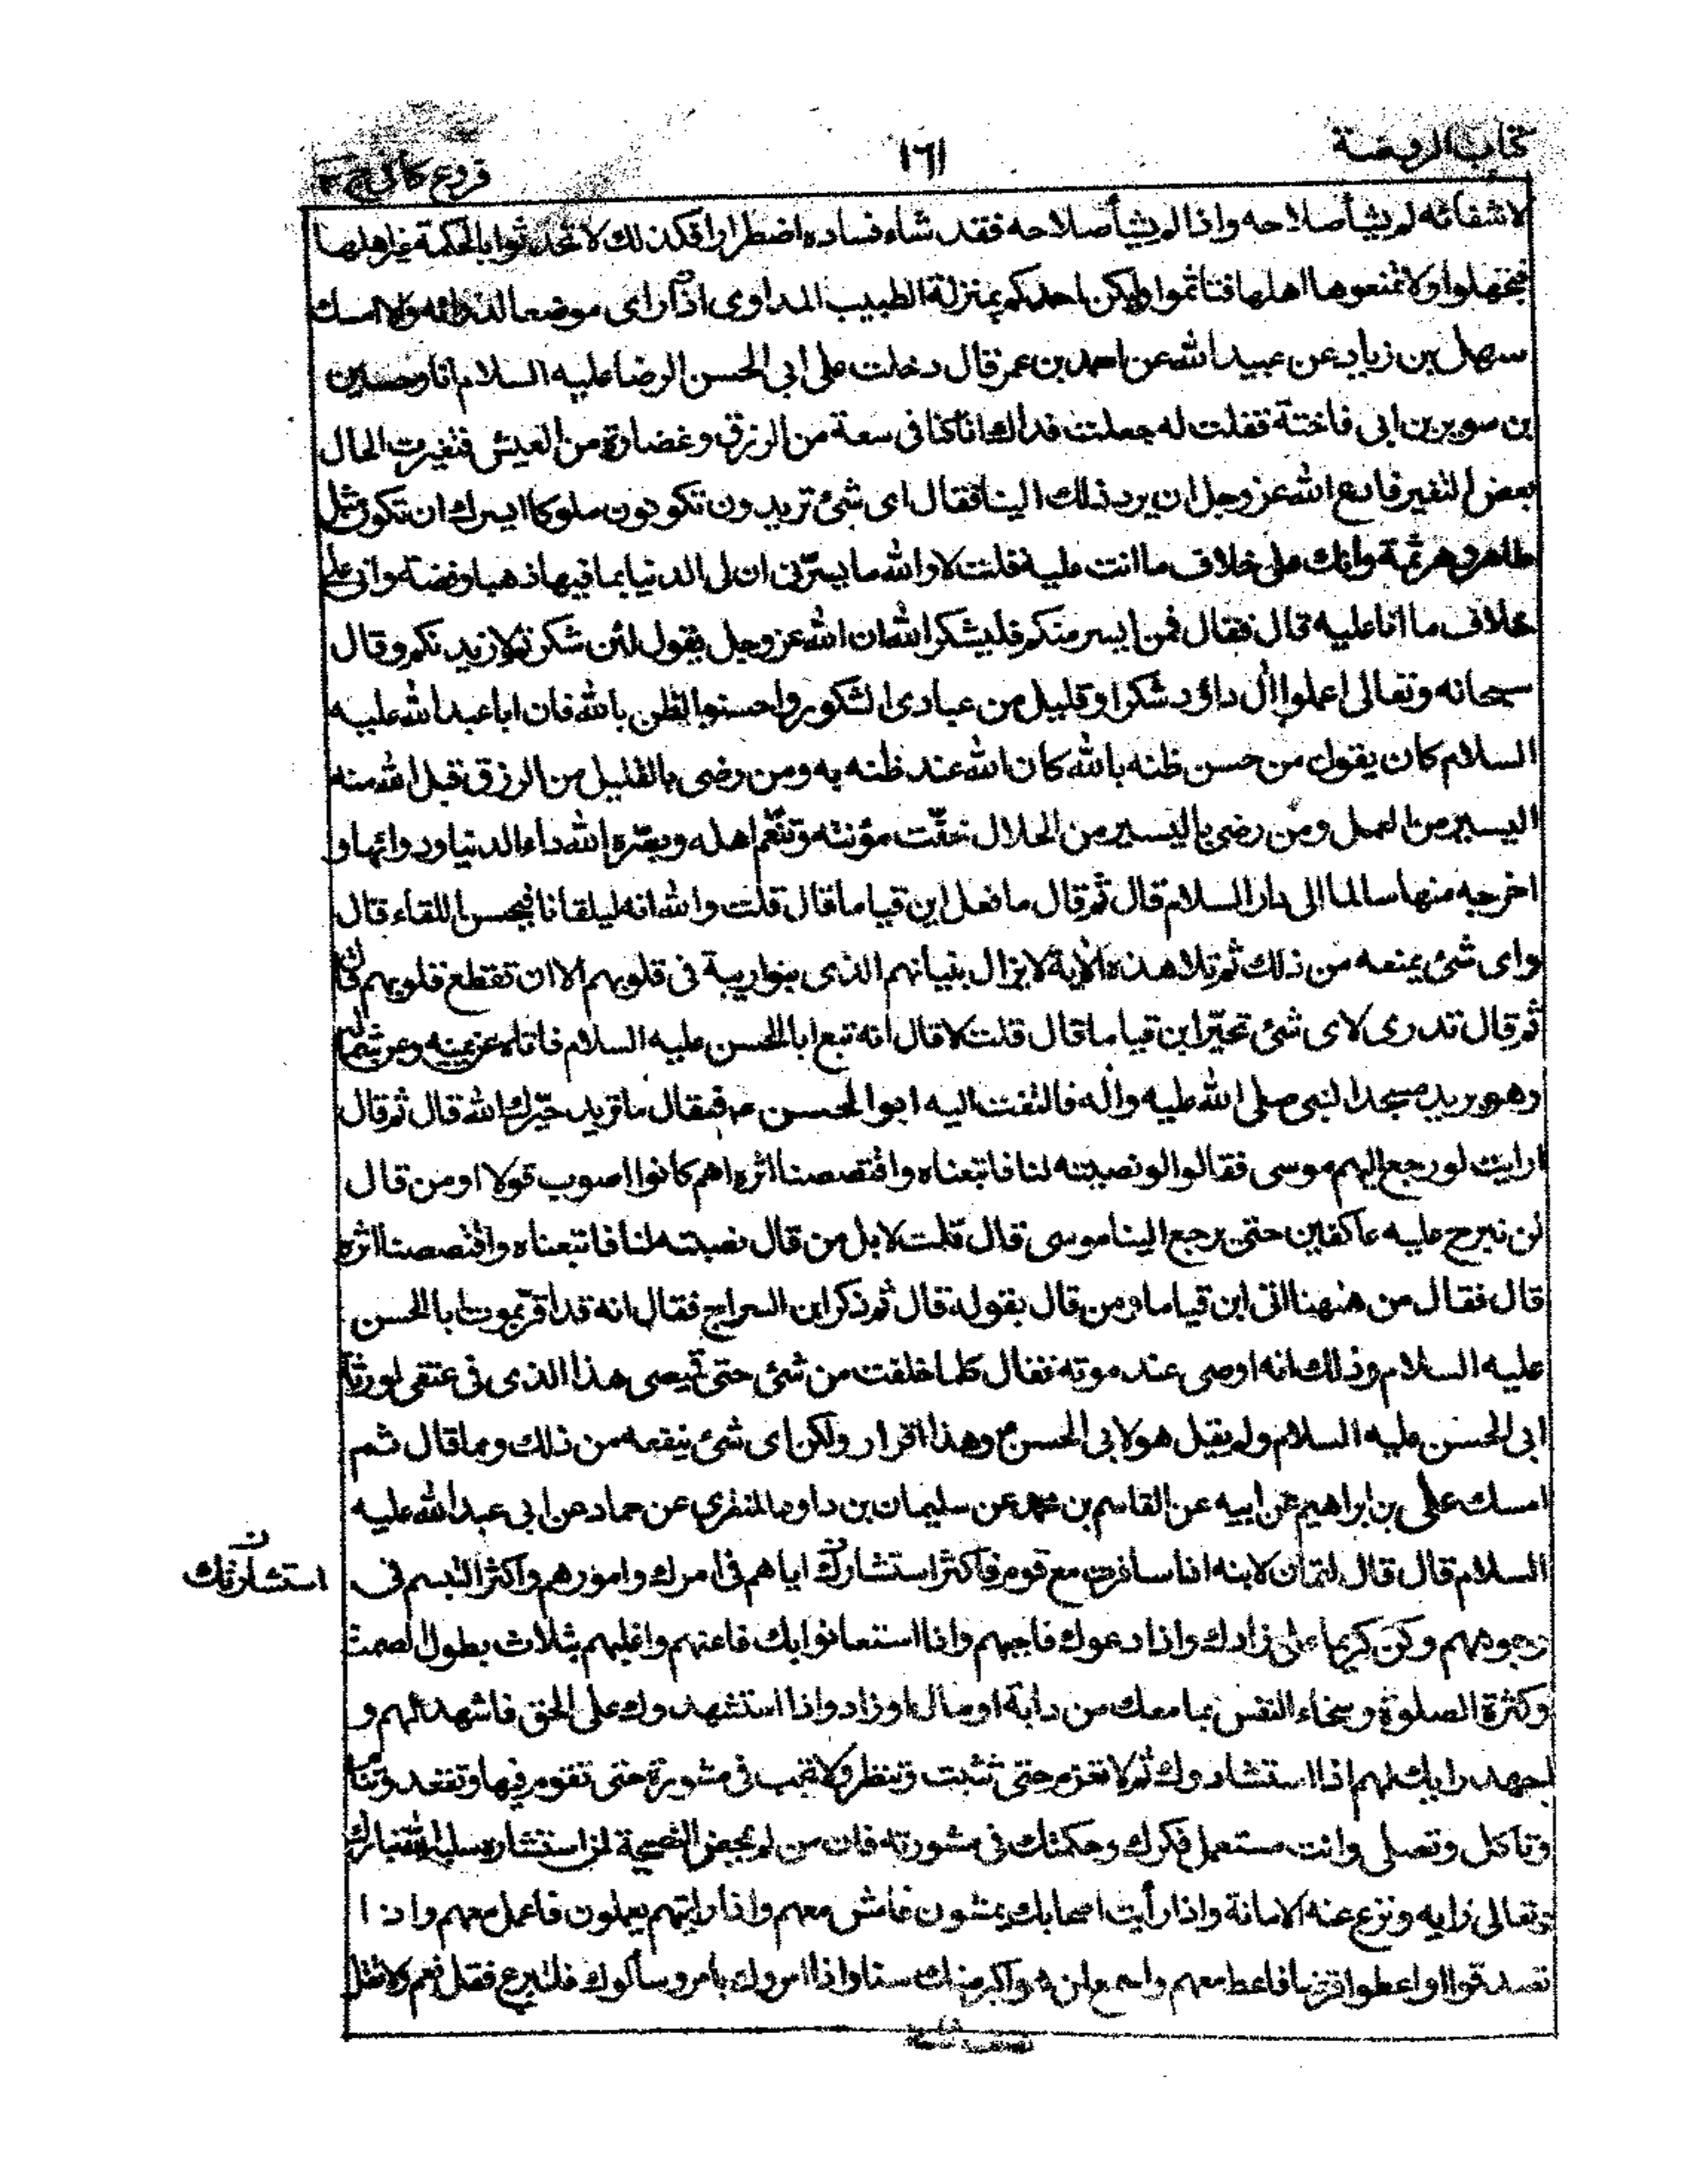 كتاب الروضة ١٦١ فروع كافي ج ٣
لاشفائه لم يشأ صلاحه واذا لم يشأ صلاحه فقد شاء فساده اضطرارا فكذلك لا تحدثوا بالحكمة غير اهلها
فتجهلوا ولا تمنعوها اهلها فتأثموا وليكن احدكم بمنزلة الطبيب المداوى اذا راى موضعا لدوائه والا امسك
سهل بن زياد عن عبيد الله عن احمد بن عمر قال دخلت على ابى الحسن الرضا عليه السلام انا وحسين
بن سوير بن ابى فاختة فقلت له جعلت فداك انا كنا فى سعة من الرزق وغضارة من العيش فتغيرت الحال
بعض التغير فادع الله عز وجل ان يرد ذلك الينا فقال اى شئ تريدون تكونون ملوكا ايسرك ان تكون مثل
طاهر وهرثمة وانك على خلاف ما انت عليه قلت لا والله ما يسرّنى ان لى الدنيا بما فيها ذهبا وفضة وانى على
خلاف ما انا عليه قال فقال فمن ايسر منكم فليشكر الله ان الله عز وجل يقول لئن شكرتم لازيدنكم وقال
سبحانه وتعالى اعملوا أل داؤد شكرا وقليل من عبادى الشكور واحسنوا الظن بالله فان ابا عبد الله عليه
السلام كان يقول من حسن ظنه بالله كان الله عند ظنه به ومن رضى بالقليل من الرزق قبل الله منه
اليسير من العمل ومن رضى باليسير من الحلال خفّت مؤنته وتنعّم اهله وبصّره الله داء الدنيا ودوائها و
اخرجه منها سالما الى دار السلام قال ثم قال ما فعل ابن قياما قال قلت والله انه ليلقانا فيحسن اللقاء قال
واى شئ يمنعه من ذلك ثم تلا هذه الاية لا يزال بنيانهم الذى بنوا ريبة فى قلوبهم الا ان تقطع قلوبهم قال
ثم قال تدرى لاى شئ تحيّر ابن قياما قال قلت لا قال انه تبع ابا الحسن عليه السلام فاتاه عن يمينه وعن شماله
وهو يريد مسجد النبى صلى الله عليه وأله فالتفت اليه ابو الحسن ع فقال ما تريد حيّرك الله قال ثم قال
ارايت لو رجع اليهم موسى فقالوا لو نصبته لنا فاتبعناه واقتصصنا اثره اهم كانوا اصوب قولا او من قال
لن نبرح عليه عاكفين حتى يرجع الينا موسى قال قلت لا بل من قال نصبته لنا فاتبعناه واقتصصنا اثره
قال فقال من ههنا اتى ابن قياما ومن قال بقوله قال ثم ذكر ابن السراج فقال انه قد اقر بموت ابا الحسن
عليه السلام وذلك انه اوصى عند موته فقال كلما خلفت من شئ حتى قميصى هذا الذى فى عنقى لورثة
ابى الحسن عليه السلام ولم يقل هو لابى الحسن ع وهذا اقرار ولكن اى شئ ينفعه من ذلك ومما قال ثم
امسك على بن ابراهيم عن ابيه عن القاسم بن محمد عن سليمان بن داود المنقرى عن حماد عن ابى عبد الله عليه
السلام قال قال لقمان لابنه اذا سافرت مع قوم فاكثر استشارتك اياهم فى امرك وامورهم واكثر التبسم فى
استشارتك
وجوههم وكن كريما على زادك واذا دعوك فاجبهم واذا استعانوا بك فاعنهم واغلبهم بثلاث بطول الصمت
وكثرة الصلوة وسخاء النفس بما معك من دابة او مال او زاد واذا استشهدوك على الحق فاشهد لهم و
اجهد رايك لهم اذا استشاروك ثم لا تعزم حتى تثبت وتنظر ولا تجب فى مشورة حتى تقوم فيها وتقعد وتنام
وتاكل وتصلى وانت مستعمل فكرك وحكمتك فى مشورته فان من لم يمحض النصيحة لمن استشاره سلبه الله تبارك
وتعالى رايه ونزع عنه الامانة واذا رأيت اصحابك يمشون فامش معهم واذا رايتهم يعملون فاعمل معهم واذا
تصدقوا او اعطوا قرضا فاعط معهم واسمع لمن هو اكبر منك سنا واذا امروك بامر وسألوك فتبرع فقل نعم ولا تقل